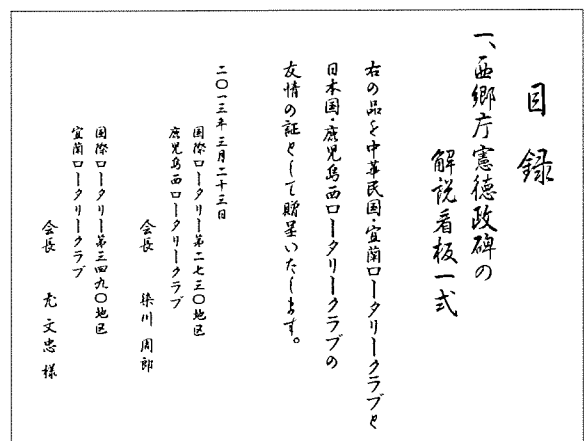 目録
一、西郷庁憲德政碑の
解説看板一式
右の品を中華民国・宜蘭ロータリークラブと
日本国・鹿児島西ロータリークラブの
友情の証として贈呈いたします。
二〇一三年三月二十三日
国際ロータリー第二七三〇地区
鹿児島西ロータリークラブ
会長 染川周郎
国際ロータリー第三四九〇地区
宜蘭ロータリークラブ
会長 文忠様